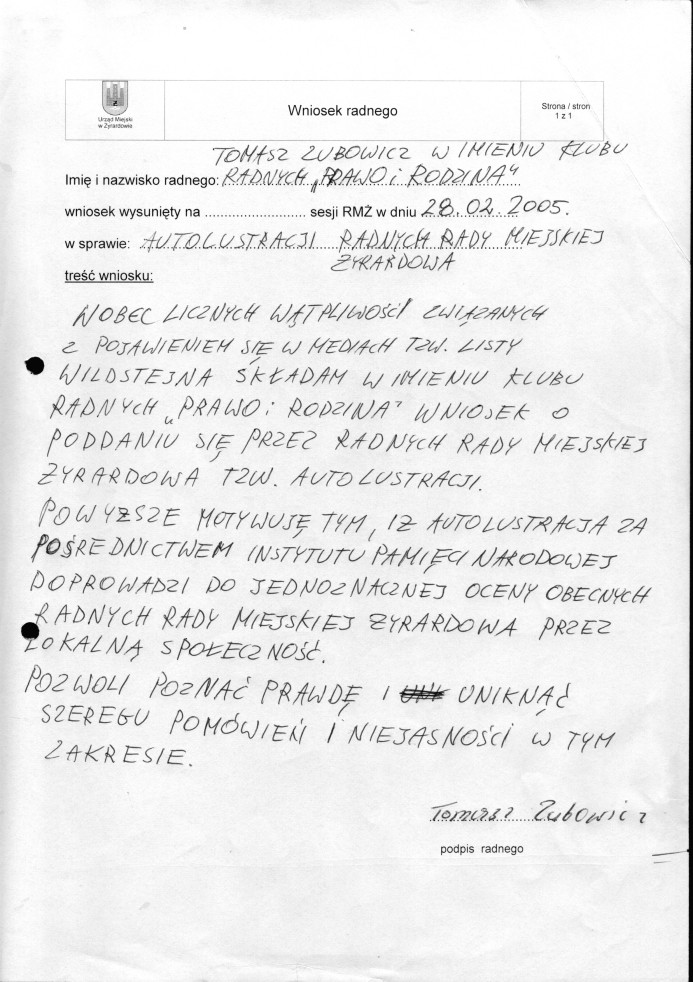 Urząd Miejski
w Żyrardowie
Wniosek radnego
Strona / stron
1 z 1
TOMASZ ZUBOWICZ W IMIENIU KLUBU
Imię i nazwisko radnego: RADNYCH „PRAWO i RODZINA"
wniosek wysunięty na .......................... sesji RMŻ w dniu 28.02.2005.
w sprawie: AUTOLUSTRACJI RADNYCH RADY MIEJSKIEJ
ŻYRARDOWA
treść wniosku:
WOBEC LICZNYCH WĄTPLIWOŚCI ZWIĄZANYCH
Z POJAWIENIEM SIĘ W MEDIACH TZW. LISTY
WILDSTEJNA SKŁADAM W IMIENIU KLUBU
RADNYCH „PRAWO i RODZINA" WNIOSEK O
PODDANIU SIĘ PRZEZ RADNYCH RADY MIEJSKIEJ
ŻYRARDOWA TZW. AUTOLUSTRACJI.
POWYŻSZE MOTYWUJĘ TYM, IŻ AUTOLUSTRACJA ZA
POŚREDNICTWEM INSTYTUTU PAMIĘCI NARODOWEJ
DOPROWADZI DO JEDNOZNACZNEJ OCENY OBECNYCH
RADNYCH RADY MIEJSKIEJ ŻYRARDOWA PRZEZ
LOKALNĄ SPOŁECZNOŚĆ.
POZWOLI POZNAĆ PRAWDĘ I UNIKNĄĆ
SZEREGU POMÓWIEŃ I NIEJASNOŚCI W TYM
ZAKRESIE.
Tomasz Zubowicz
podpis radnego